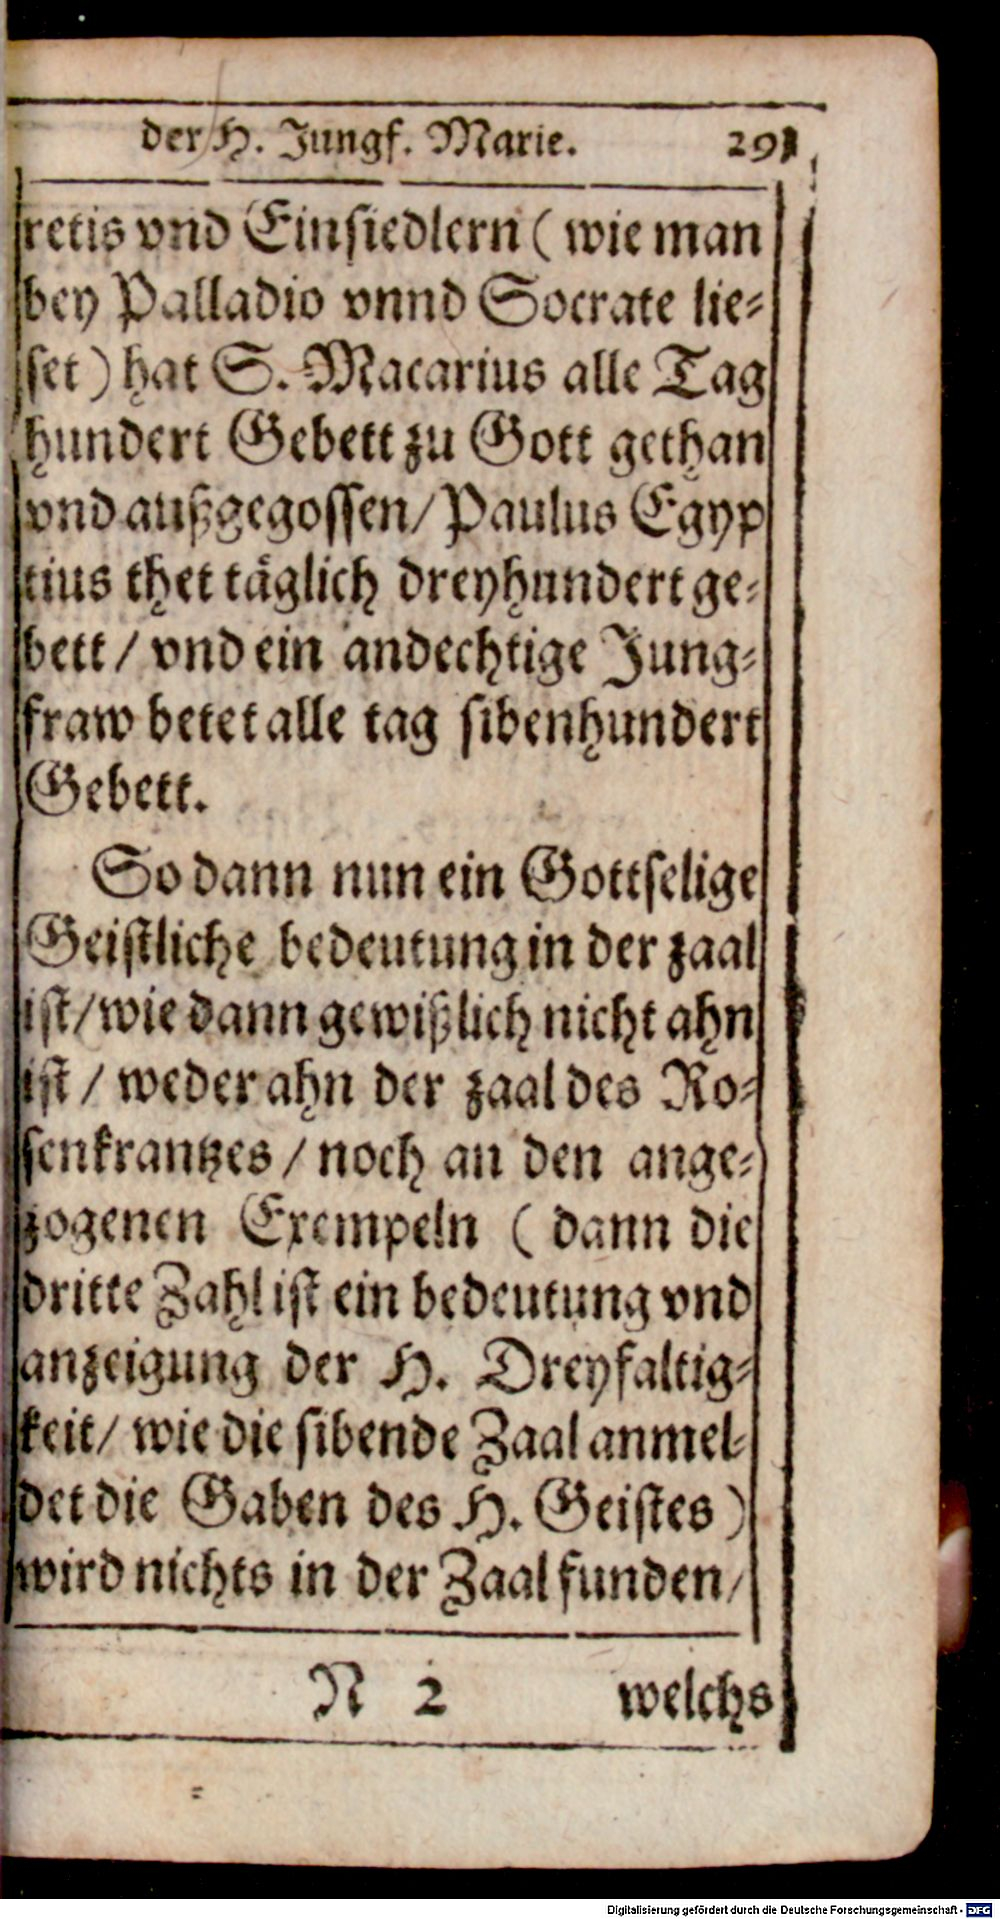 der H. Jungf. Marie. 291
retis vnd Einsiedlern ( wie man
bey Palladio vnnd Socrate lie-
set ) hat S. Macarius alle Tag
hundert Gebett zu Gott gethan
vnd außgegossen/ Paulus Egyp
tius thet täglich dreyhundert ge-
bett / vnd ein andechtige Jung-
fraw betet alle tag sibenhundert
Gebett.
So dann nun ein Gottselige
Geistliche bedeutung in der zaal
ist/ wie dann gewißlich nicht ahn
ist / weder ahn der zaal des Ro-
senkrantzes / noch an den ange-
zogenen Exempeln ( dann die
dritte Zahl ist ein bedeutung vnd
anzeigung der H. Dreyfaltig-
keit/ wie die sibende Zaal anmel-
det die Gaben des H. Geistes )
wird nichts in der Zaal funden/
N 2 welchs
Digitalisierung gefördert durch die Deutsche Forschungsgemeinschaft - DFG